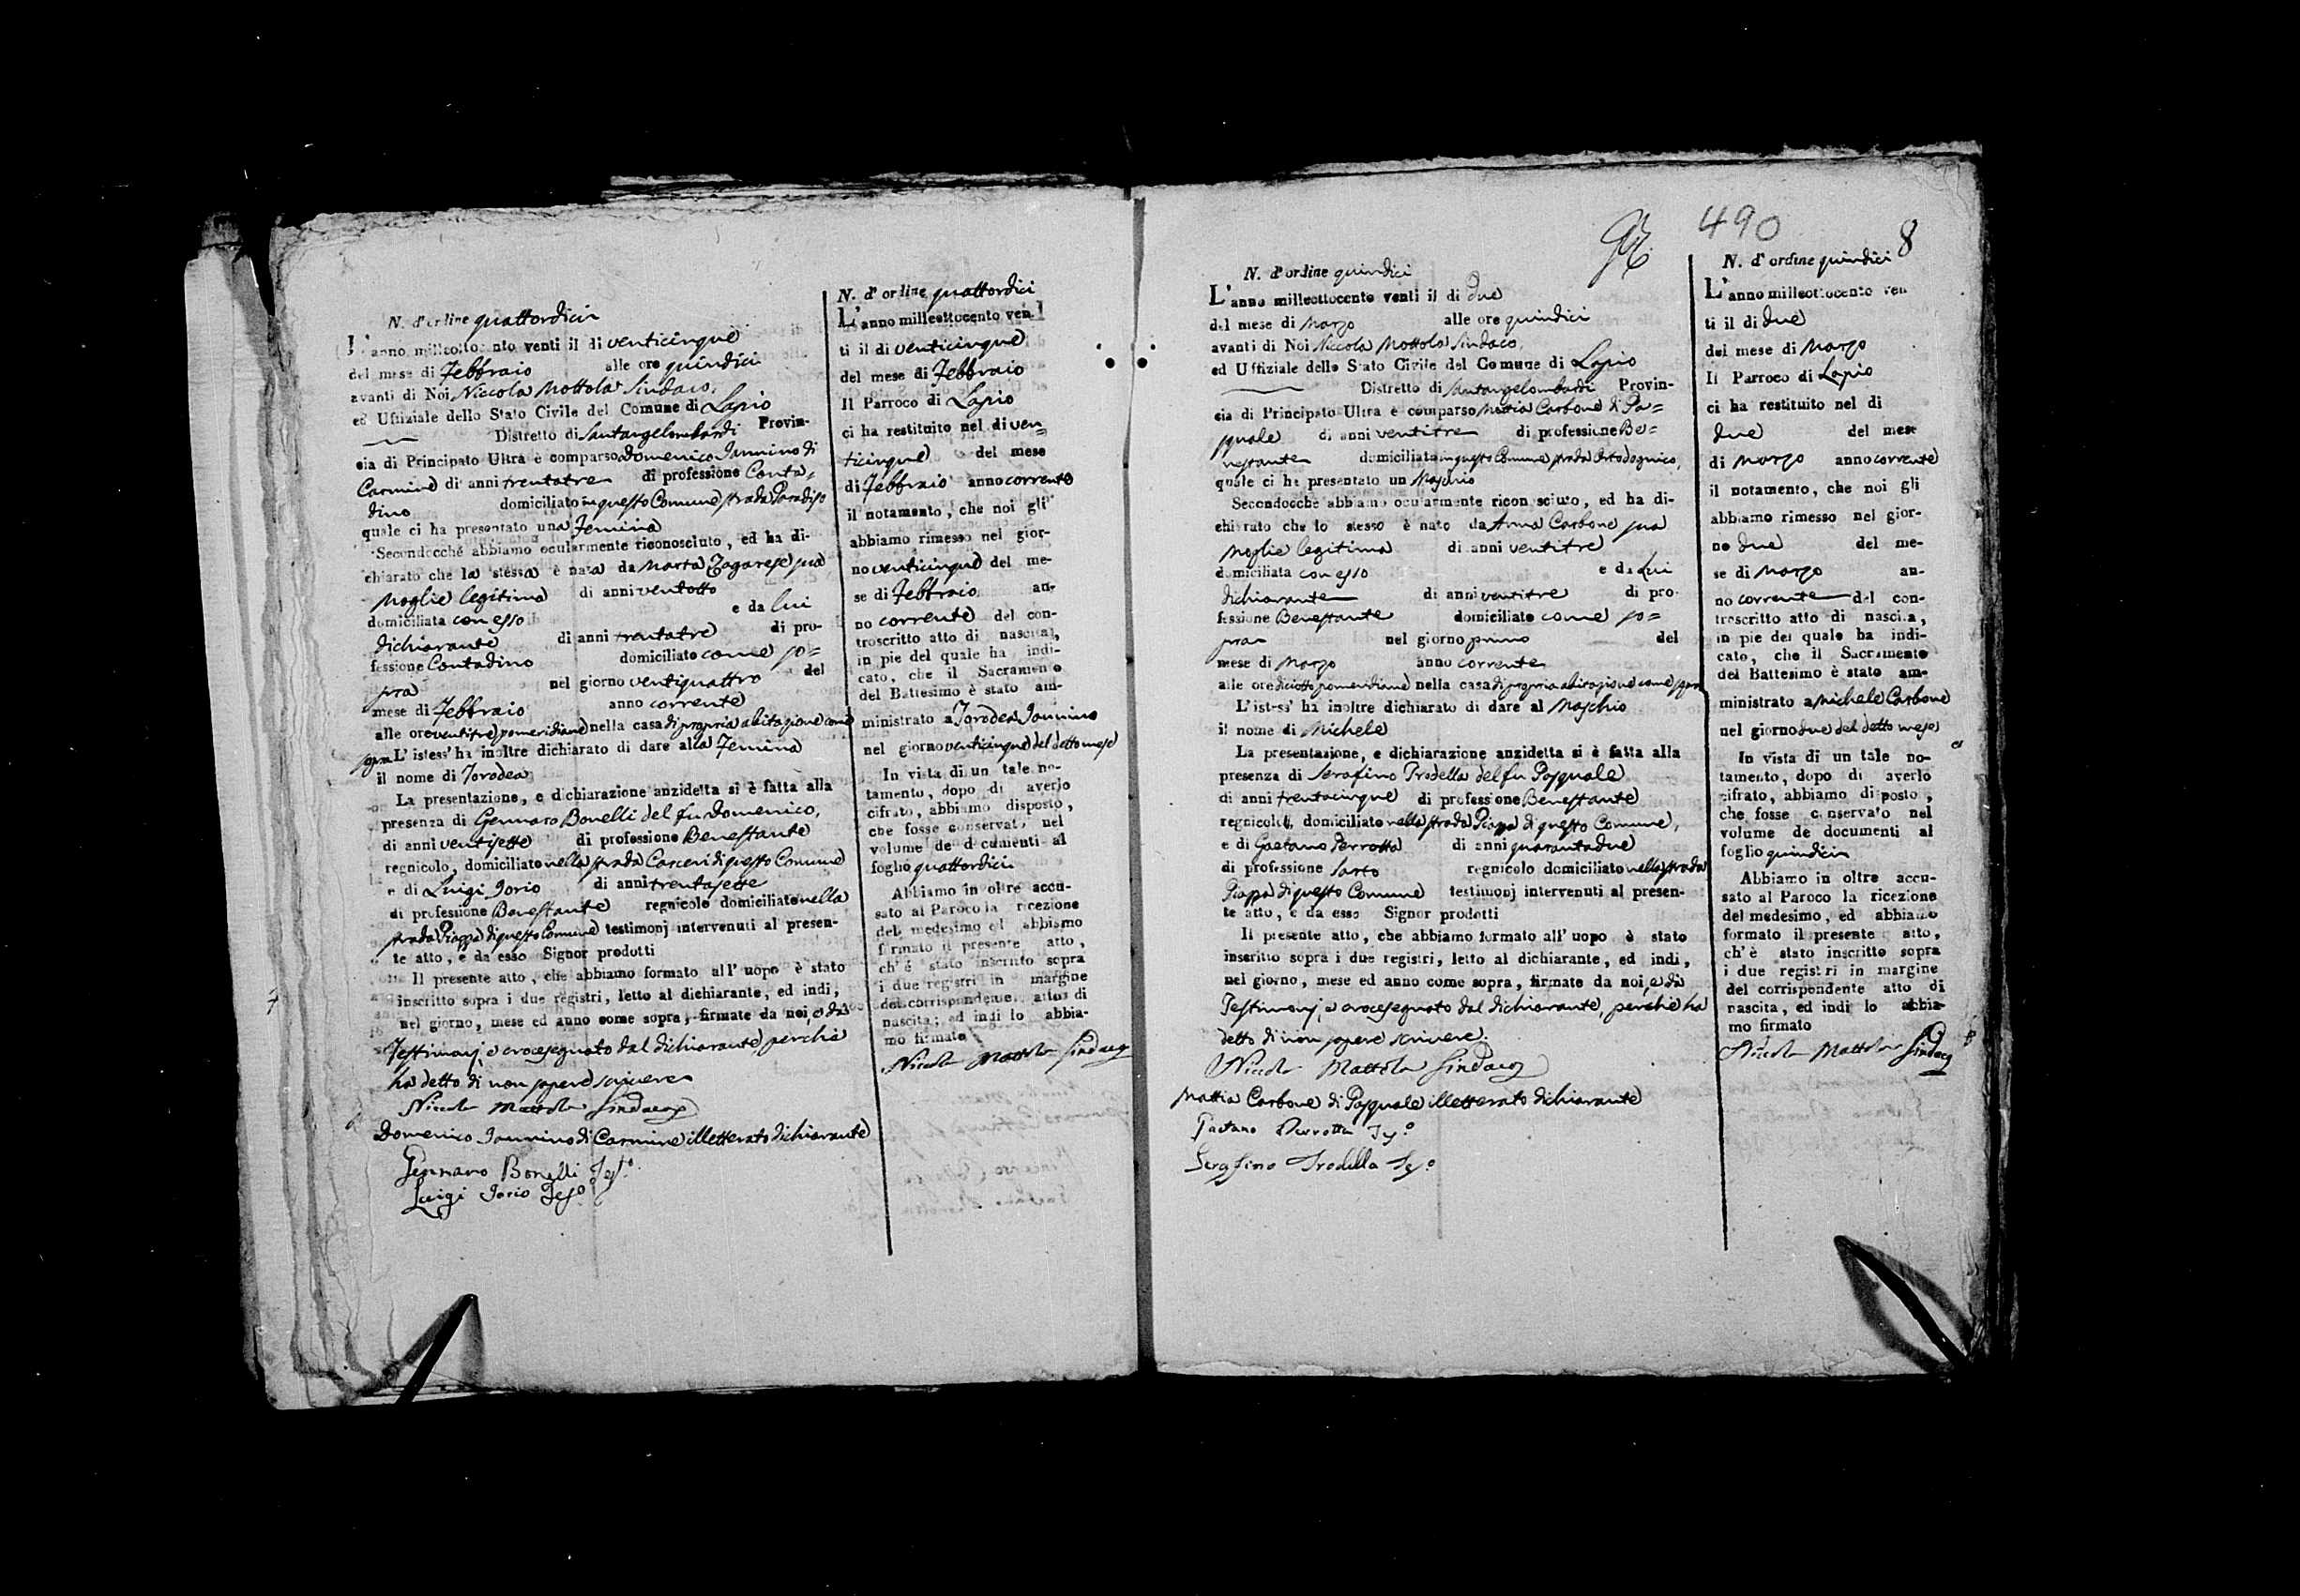 N. d'ordine quattordici
L'anno milleottocento venti il di venticinque
del mese di Febbraio alle ore quindici
avanti di Noi Niccola Mottola Sindaco,
ed Uffiziale dello Stato Civile del Comune di Lapio
Distretto di Santangelombardi Provin-
cia di Principato Ultra è comparso Domenico Iannino di
Carmine di anni trentatre di professione Conta=
dino domiciliato in questo Comune strada Paradiso
quale ci ha presentato una Femina
Secondocché abbiamo ocularmente riconosciuto, ed ha di-
chiarato che la stessa è nata da Marta Zagarese sua
Moglie legitima di anni ventotto
domiciliata con esso e da lui
dichiarante di anni trentatre di pro-
fessione Contadino domiciliato come so=
pra nel giorno ventiquattro del
mese di Febbraio anno corrente
alle ore ventitre pomeridiane nella casa di propria abitazione come
sopra L'istess' ha inoltre dichiarato di dare alla Femina
il nome di Torodea
La presentazione, e dichiarazione anzidetta si è fatta alla
presenza di Gennaro Bonelli del fu Domenico,
di anni ventisette di professione Benestante
regnicolo, domiciliato nella strada Carceri di questo Comune
e di Luigi Iorio di anni trentasette
di professione Benestante regnicolo domiciliato nella
strada Piazza di questo Comune testimonj intervenuti al presen-
te atto, e da esso Signor prodotti
Il presente atto, che abbiamo formato all' uopo è stato
inscritto sopra i due registri, letto al dichiarante, ed indi,
nel giorno, mese ed anno come sopra, firmate da noi, e da
Testimonj, e crocesegnato dal dichiarante, perchè
ha detto di non sapere scrivere
Niccola Mottola Sindaco
Domenico Iannino di Carmine illetterato dichiarante
Gennaro Bonelli Test.o
Luigi Iorio Tes.o
N. d'ordine quattordici
L'anno milleottocento ven-
ti il di venticinque
del mese di Febbraio
Il Parroco di Lapio
ci ha restituito nel di ven=
ticinque del mese
di Febbraio anno corrente
il notamento, che noi gli
abbiamo rimesso nel gior-
no venticinque del me-
se di Febbraio an-
no corrente del con-
troscritto atto di nascita,
in pie del quale ha indi-
cato, che il Sacramento
del Battesimo è stato am-
ministrato a Torodea Iannino
nel giorno venticinque del detto mese
In vista di un tale no-
tamento, dopo di averlo
cifrato, abbiamo disposto,
che fosse conservato nel
volume de documenti al
foglio quattordici
Abbiamo in oltre accu-
sato al Paroco la ricezione
del medesimo ed abbiamo
formato il presente atto,
ch'é stato inscritto sopra
i due registri in margine
del corrispondente atto di
nascita; ed indi lo abbia-
mo firmato
Niccola Mottola Sindaco
490
8
N. d'ordine quindici
L'anno milleottocento venti il di due
del mese di Marzo alle ore quindici
avanti di Noi Niccola Mottola Sindaco,
ed Uffiziale dello Stato Civile del Comune di Lapio
Distretto di Santangelombardi Provin-
cia di Principato Ultra è comparso Mattia Carbone di Pa=
squale di anni ventitre di professione Be=
nestante domiciliato in questo Comune strada Ortodognico,
quale ci ha presentato un Maschio
Secondocchè abbiamo ocularmente riconosciuto, ed ha di-
chiarato che lo stesso è nato da Anna Carbone sua
Moglie legitima di anni ventitre
domiciliata con esso e da lui
dichiarante di anni ventitre di pro-
fessione Benestante domiciliato come so=
pra nel giorno primo del
mese di Marzo anno corrente
alle ore diciotto pomeridiane nella casa di propria abitazione come sopra
L'istess' ha inoltre dichiarato di dare al Maschio
il nome di Michele
La presentazione, e dichiarazione anzidetta si è fatta alla
presenza di Serafino Trodella del fu Pasquale
di anni trentacinque di professione Benestante
regnicolo, domiciliato nella strada Piazza di questo Comune,
e di Gaetano Perrotta di anni quarantadue
di professione Sarto regnicolo domiciliato nella strada
Piazza di questo Comune testimonj intervenuti al presen-
te atto, e da esso Signor prodotti
Il presente atto, che abbiamo formato all' uopo è stato
inscritto sopra i due registri, letto al dichiarante, ed indi,
nel giorno, mese ed anno come sopra, firmate da noi, e da
Testimonj, e crocesegnato dal dichiarante, perchè ha
detto di non sapere scrivere.
Niccola Mottola Sindaco
Mattia Carbone di Pasquale illetterato dichiarante
Gaetano Perrotta Tes.o
Serafino Trodella Tes.o
N. d'ordine quindici
L'anno milleottocento ven
ti il di due
del mese di Marzo
Il Parroco di Lapio
ci ha restituito nel di
due del mese
di Marzo anno corrente
il notamento, che noi gli
abbiamo rimesso nel gior-
no due del me-
se di Marzo an-
no corrente del con-
troscritto atto di nascita,
in pie del quale ha indi-
cato, che il Sacramento
del Battesimo è stato am-
ministrato a Michele Carbone
nel giorno due del detto mese
In vista di un tale no-
tamento, dopo di averlo
cifrato, abbiamo disposto,
che fosse conservato nel
volume de documenti al
foglio quindici
Abbiamo in oltre accu-
sato al Paroco la ricezione
del medesimo, ed abbiamo
formato il presente atto,
ch'è stato inscritto sopra
i due registri in margine
del corrispondente atto di
nascita, ed indi lo abbia-
mo firmato
Niccola Mottola Sindaco